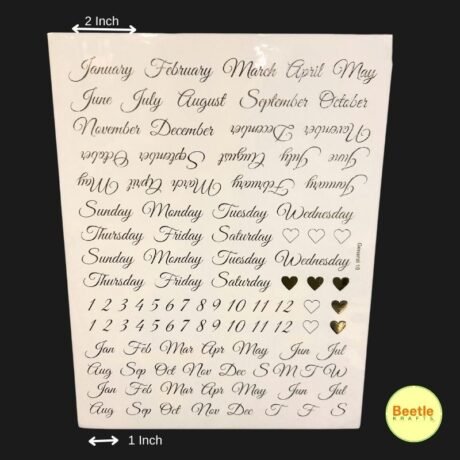 2 Inch
January February March April May
June July August September October
November December December November
October September August July June
May April March February January
Sunday Monday Tuesday Wednesday
Thursday Friday Saturday
Sunday Monday Tuesday Wednesday
Thursday Friday Saturday
General 10
1 2 3 4 5 6 7 8 9 10 11 12
1 2 3 4 5 6 7 8 9 10 11 12
Jan Feb Mar Apr May Jun Jul
Aug Sep Oct Nov Dec S M T W
Jan Feb Mar Apr May Jun Jul
Aug Sep Oct Nov Dec T F S
Beetle
KRAFTS
1 Inch